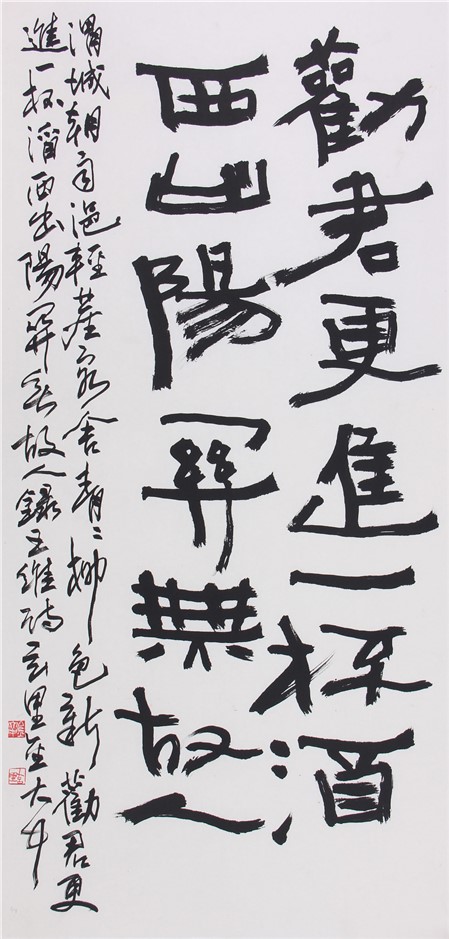 勸君更進一杯酒
西出陽關無故人
渭城朝雨浥輕塵客舍青〻柳色新勸君更
進一杯酒西出陽關無故人錄王維詩